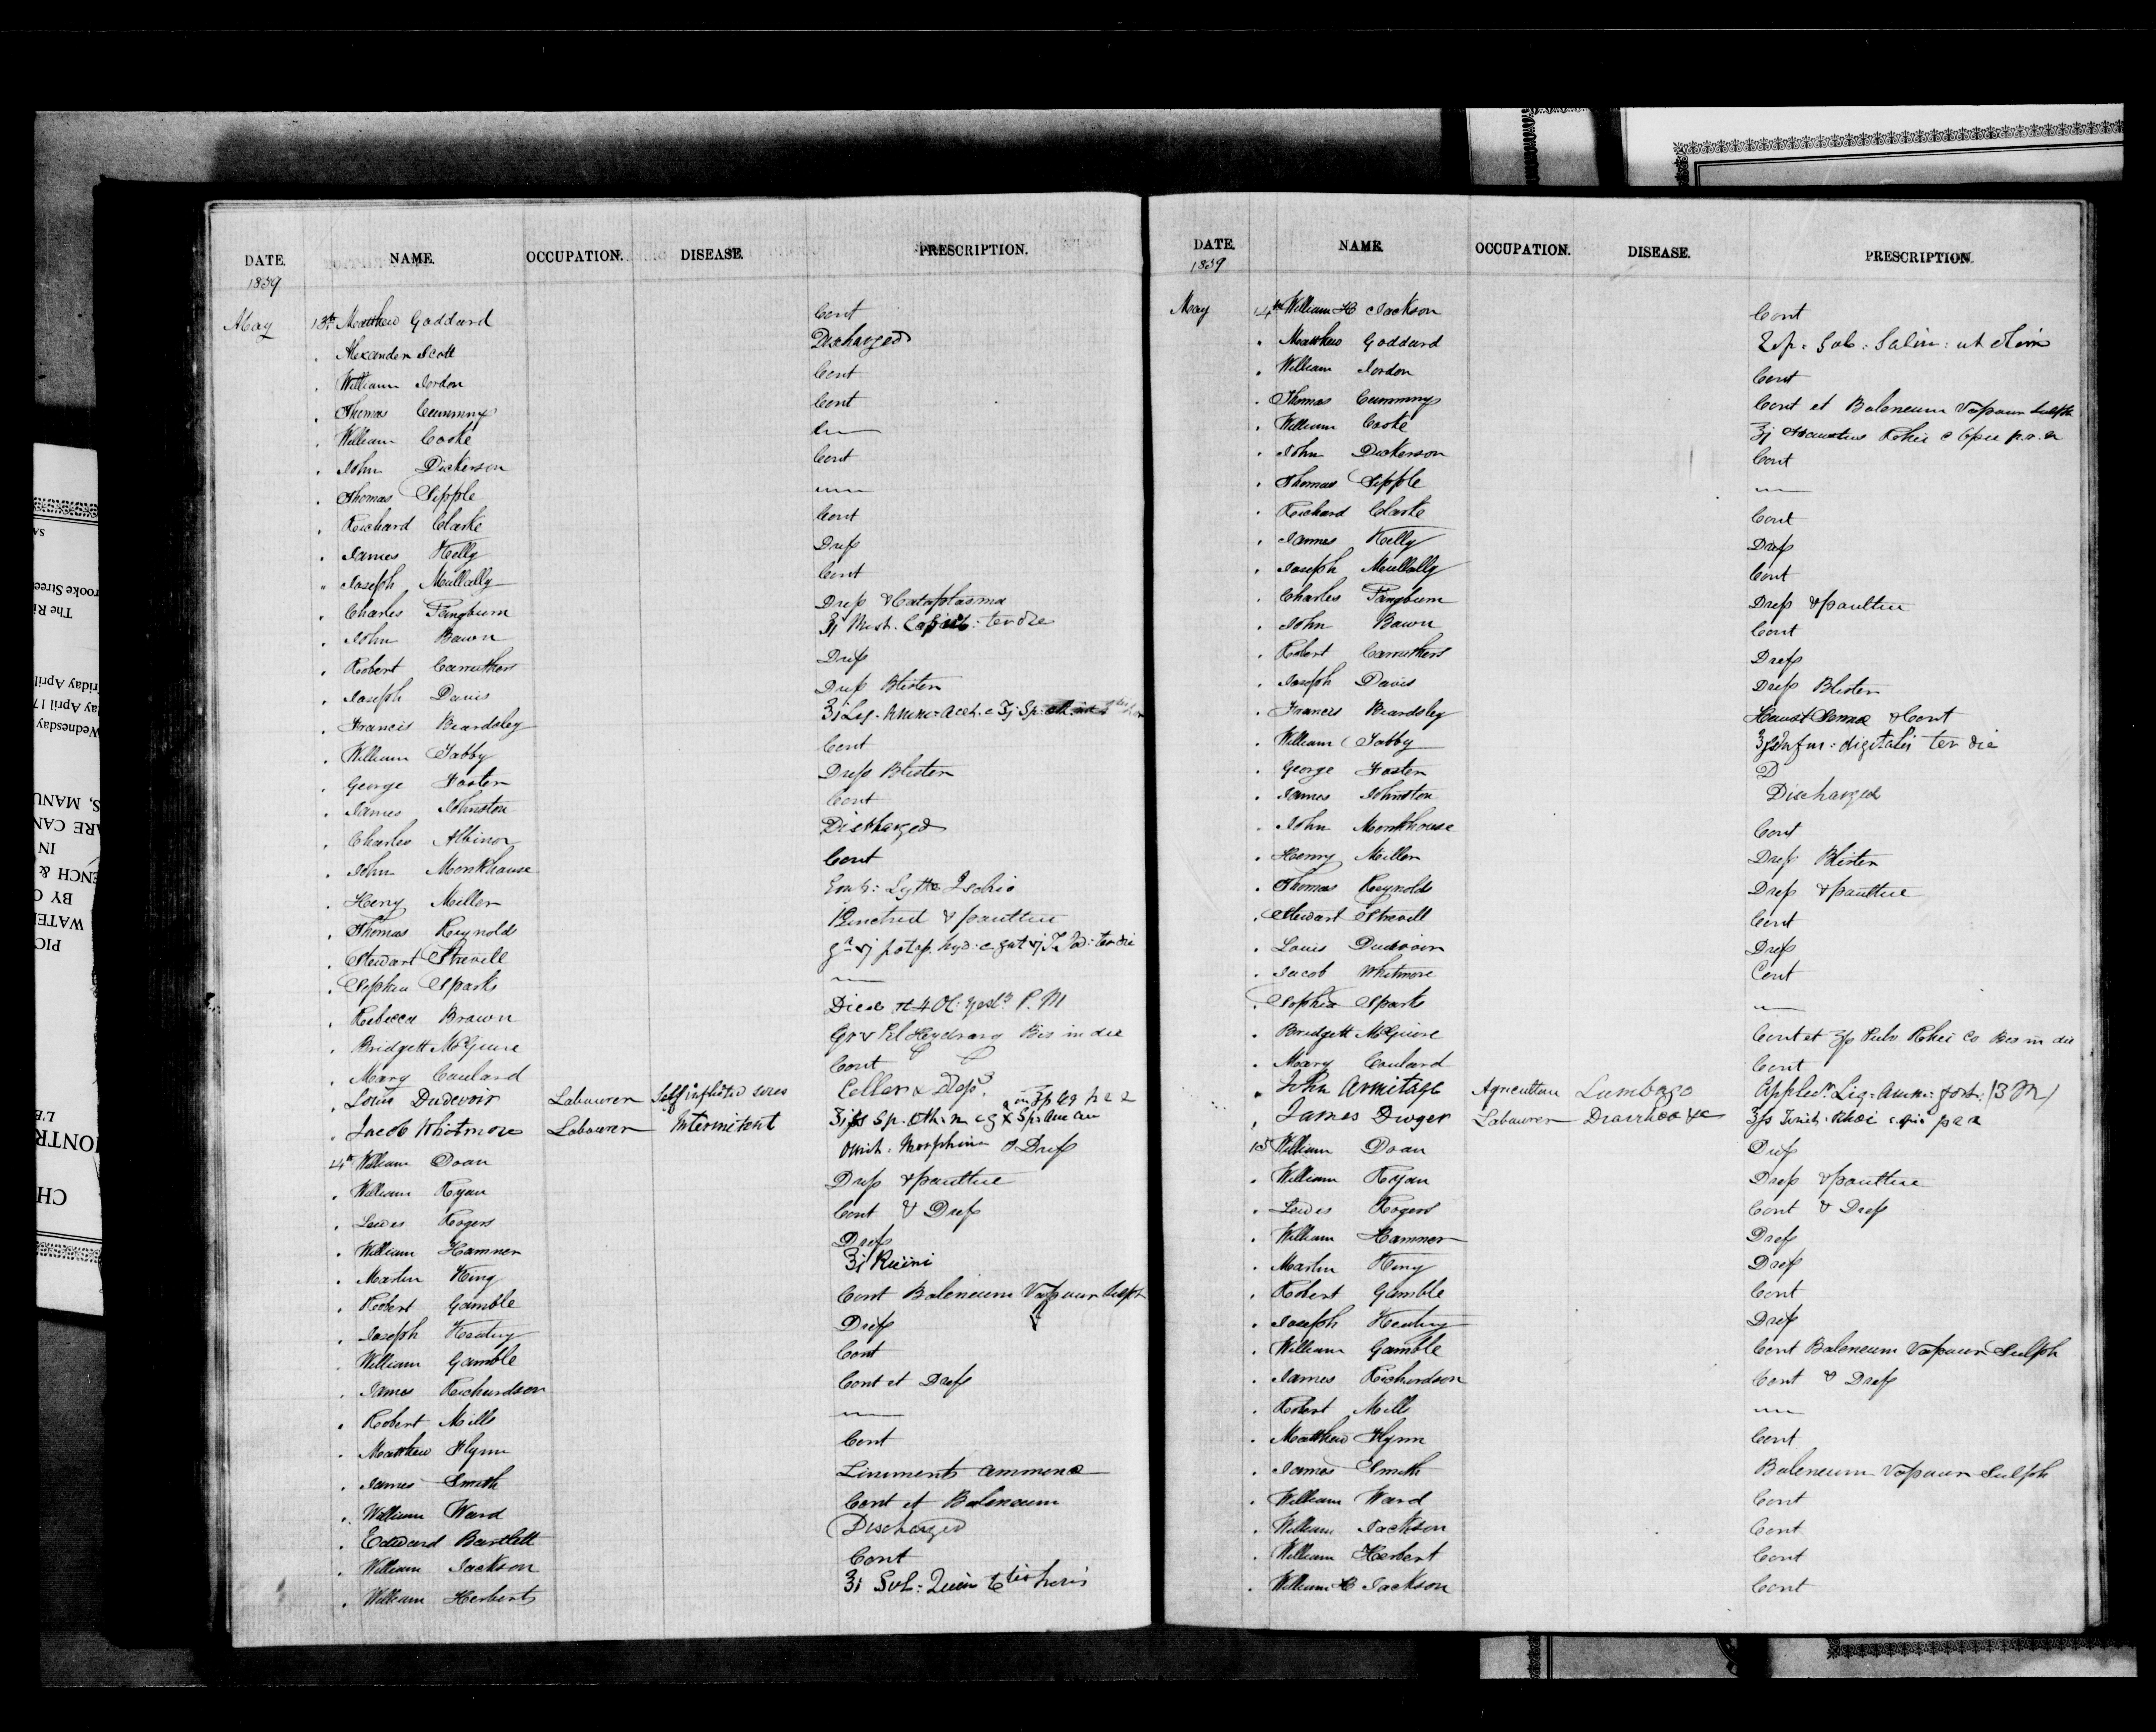 DATE. NAME. OCCUPATION. DISEASE. PRESCRIPTION.
1839
May 13th Matthew Goddard Cont
Alexander Scott Discharged
William Jordon Cont
Thomas Cummings Cont
William Cooke
John Dickerson Cont
Thomas Sipple
Richard Clarke Cont
James Kelly Dress
Joseph Mullally Cont
Charles Pangburn Dress & Cataplasma
John Bawn Mist. ter die
Robert Carruthers Dress
Joseph Davis Dress Blister
Francis Beardsley
William Tabby Cont
George Foster Dress Blister
James Johnston Cont
Charles Albinor Discharged
John Monkhouse Cont
Heny Miller
Thomas Reynolds & poultice
Stewart Strevell ter die
Sophia Sparks
Rebecca Brown Died at 4 Ol. P.M
Bridgett McGuire Bis in die
Mary Coulard Cont
Louis Dudevoir Labourer Self inflicted sores
Jacob Whitmore Labourer Intermitent
14th William Doan Dress
William Ryan Dress & poultice
Lewis Rogers Cont & Dress
William Hamner Dress
Martin King Ricini
Robert Gamble Cont Baleneum Vapour Sulph
Joseph Keating Dress
William Gamble Cont
James Richardson Cont et Dress
Robert Mills
Matthew Flynn Cont
James Smith Liniments ammona
William Ward Cont et Baleneum
Edward Bartlett Discharged
William Jackson Cont
William Herbert
DATE. NAME. OCCUPATION. DISEASE. PRESCRIPTION.
1839
May 14th William H Jackson Cont
Matthew Goddard
William Jordon Cont
Thomas Cummings Cont et Baleneum Vapour Sulph
William Cooke
John Dickerson Cont
Thomas Sipple
Richard Clarke Cont
James Kelly Dress
Joseph Mullally Cont
Charles Pangburn Dress & poultice
John Bawn Cont
Robert Carruthers Dress
Joseph Davis Dress Blister
Francis Beardsley & Cont
William Tabby digitalis ter die
George Foster D
James Johnston Discharged
John Monkhouse Cont
Henry Miller Dress Blister
Thomas Reynolds Dress & poultice
Stewart Strevell Cont
Louis Dudevoir Dress
Jacob Whitmore Cont
Sophia Spark
Bridgett McGuire Cont et Pulv Rhei Co Bis in die
Mary Coulard Cont
John Armitage Agriculture Lumbago
James Dwyer Labourer Diarrhea &c
15 William Doan Dress
William Ryan Dress & poultice
Lewis Rogers Cont & Dress
William Hamner Dress
Martin King Dress
Robert Gamble Cont
Joseph Keating Dress
William Gamble Cont Baleneum Vapour Sulph
James Richardson Cont & Dress
Robert Mills
Matthew Flynn Cont
James Smith Baleneum Vapour Sulph
William Ward Cont
William Jackson Cont
William Herbert Cont
William H Jackson Cont